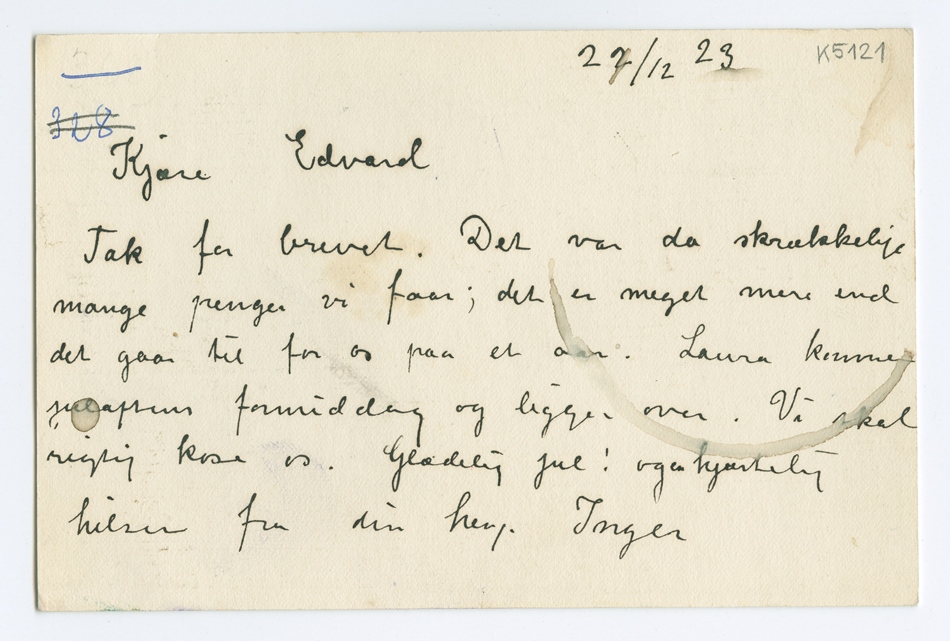 22/12 23
K5121
328
Kjære Edvard
Tak for brevet. Det var da skrækkelige
mange penger vi faar; det er meget mere end
det gaar til for os paa et aar. Laura kommer
juleaftens formiddag og ligger over. Vi skal
rigtig kose os. Glædelig jul! og hjærtelig
hilsen fra din heng. Inger